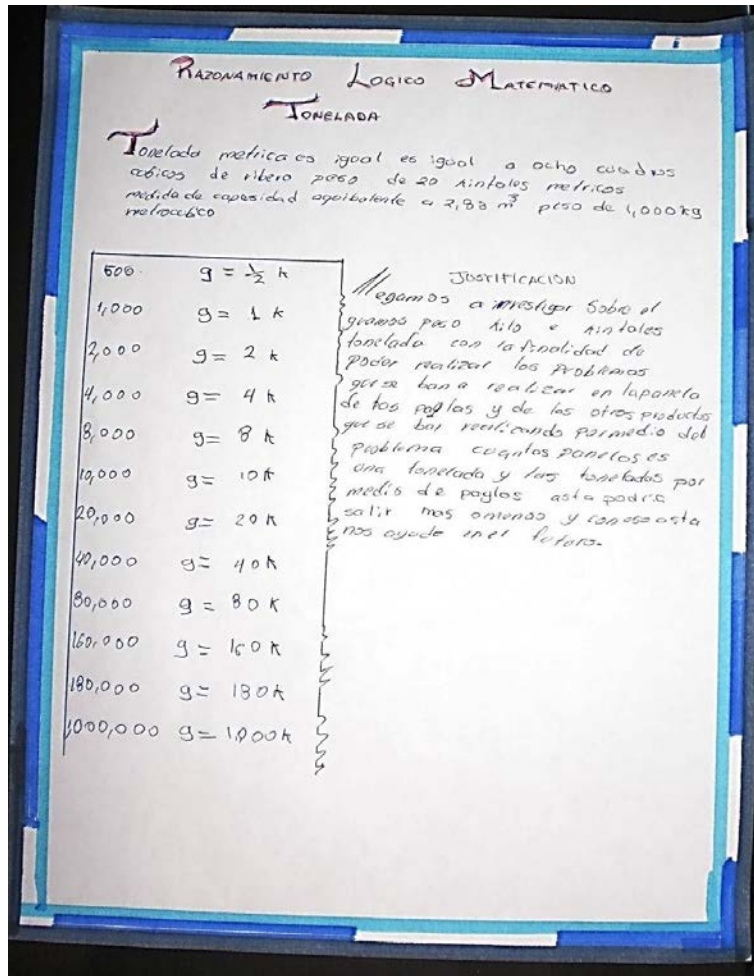 RAZONAMIENTO LOGICO MATEMATICO
TONELADA
Tonelada metrica es igual es igual a ocho cuadros
cubicos de ribero peso de 20 kintales metricos
medida de capasidad equibalente a 2,83 m³ peso de 1,000 kg
metrocubico
500 g = ½ k
1,000 g = 1 k
2,000 g = 2 k
4,000 g = 4 k
8,000 g = 8 k
10,000 g = 10 k
20,000 g = 20 k
40,000 g = 40 k
80,000 g = 80 k
160,000 g = 160 k
180,000 g = 180 k
1000,000 g = 1,000 k
JUSTIFICACION
llegamos a investigar sobre el
gramos peso kilo e kintales
tonelada con la finalidad de
poder realizar los problemas
que se ban a realizar en lapanela
de los paylas y de los otros productos
que se ban realicando pormedio del
problema cuantas panelas es
una tonelada y las toneladas por
medio de paylas asta podra
salir mas omenos y con eso asta
nos ayude en el futuro.